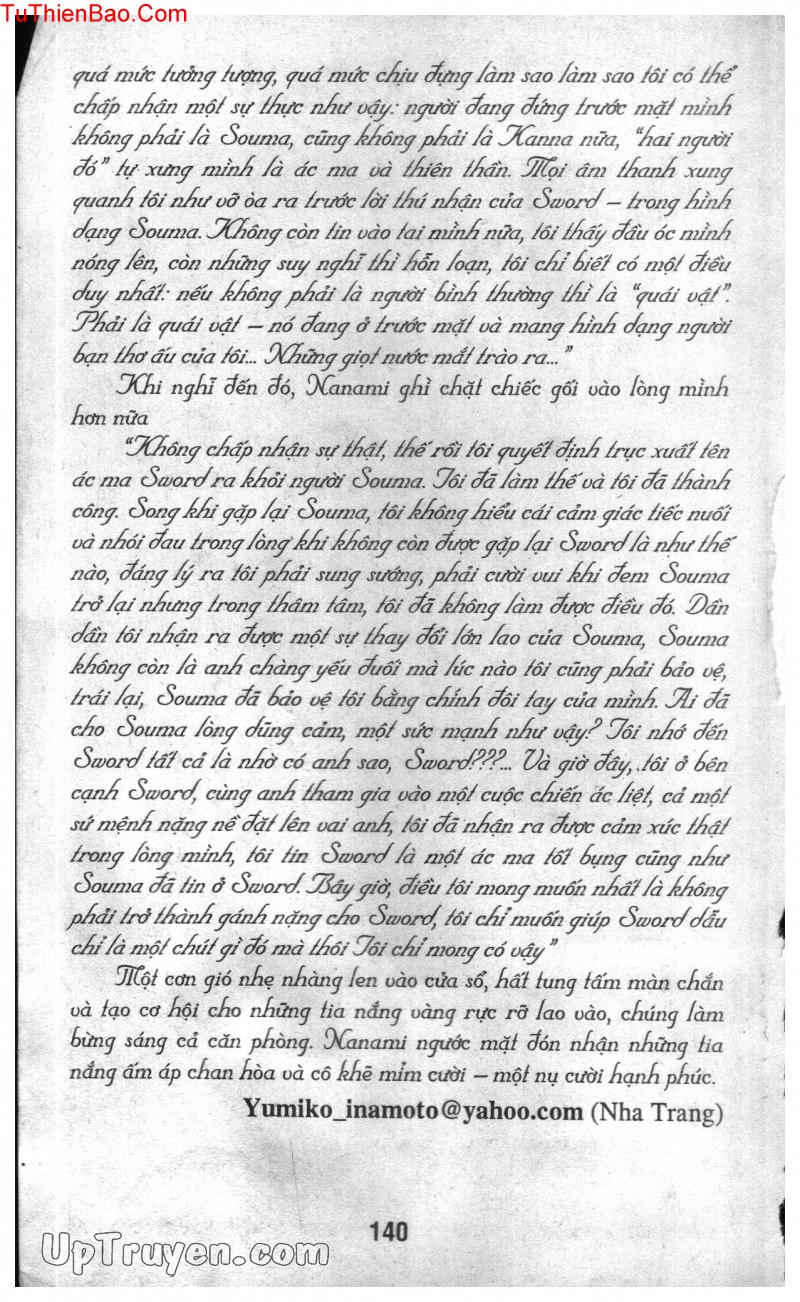 TuThienBao.Com
quá mức tưởng tượng, quá mức chịu đựng làm sao làm sao tôi có thể
chấp nhận một sự thực như vậy: người đang đứng trước mặt mình
không phải là Souma, cũng không phải là Kanna nữa, "hai người
đó" tự xưng mình là ác ma và thiên thần. Mọi âm thanh xung
quanh tôi như vỡ òa ra trước lời thú nhận của Sword – trong hình
dạng Souma. Không còn tin vào tai mình nữa, tôi thấy đầu óc mình
nóng lên, còn những suy nghĩ thì hỗn loạn, tôi chỉ biết có một điều
duy nhất: nếu không phải là người bình thường thì là "quái vật".
Phải là quái vật – nó đang ở trước mặt và mang hình dạng người
bạn thơ ấu của tôi... Những giọt nước mắt trào ra..."
Khi nghĩ đến đó, Nanami ghì chặt chiếc gối vào lòng mình
hơn nữa
"Không chấp nhận sự thật, thế rồi tôi quyết định trục xuất tên
ác ma Sword ra khỏi người Souma. Tôi đã làm thế và tôi đã thành
công. Song khi gặp lại Souma, tôi không hiểu cái cảm giác tiếc nuối
và nhói đau trong lòng khi không còn được gặp lại Sword là như thế
nào, đáng lý ra tôi phải sung sướng, phải cười vui khi đem Souma
trở lại nhưng trong thâm tâm, tôi đã không làm được điều đó. Dần
dần tôi nhận ra được một sự thay đổi lớn lao của Souma, Souma
không còn là anh chàng yếu đuối mà lúc nào tôi cũng phải bảo vệ,
trái lại, Souma đã bảo vệ tôi bằng chính đôi tay của mình. Ai đã
cho Souma lòng dũng cảm, một sức mạnh như vậy? Tôi nhớ đến
Sword tất cả là nhờ có anh sao, Sword???... Và giờ đây, tôi ở bên
cạnh Sword, cùng anh tham gia vào một cuộc chiến ác liệt, cả một
sứ mệnh nặng nề đặt lên vai anh, tôi đã nhận ra được cảm xúc thật
trong lòng mình, tôi tin Sword là một ác ma tốt bụng cũng như
Souma đã tin ở Sword. Bây giờ, điều tôi mong muốn nhất là không
phải trở thành gánh nặng cho Sword, tôi chỉ muốn giúp Sword dẫu
chỉ là một chút gì đó mà thôi Tôi chỉ mong có vậy"
Một cơn gió nhẹ nhàng len vào cửa sổ, hất tung tấm màn chắn
và tạo cơ hội cho những tia nắng vàng rực rỡ lao vào, chúng làm
bừng sáng cả căn phòng. Nanami ngước mặt đón nhận những tia
nắng ấm áp chan hòa và cô khẽ mỉm cười – một nụ cười hạnh phúc.
Yumiko_inamoto@yahoo.com (Nha Trang)
140
UpTruyen.com